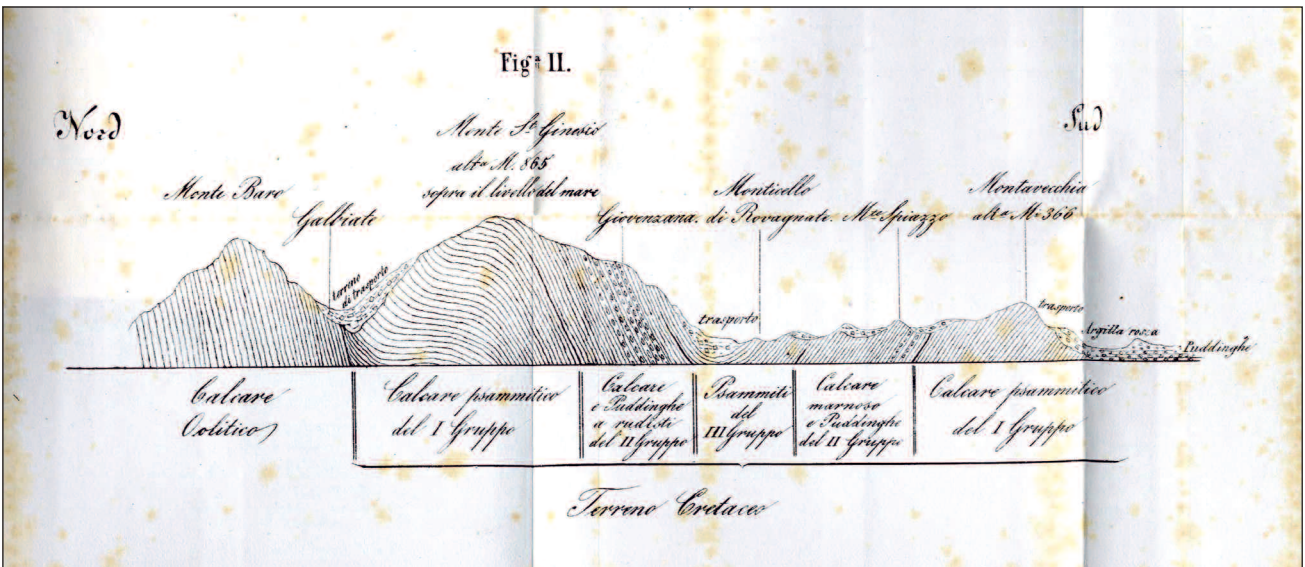 Figª II.
Nord
Sud
Monte Sᵗ Ginesio
altª M. 865
sopra il livello del mare
Monte Baro
Galbiate
Giovenzana.
Monticello
di Rovagnate.
Mᵗᵉ Spiazzo
Montavecchia
altª Mⁱ 366
terreno
di trasporto
trasporto
trasporto
Argilla rossa
Puddinghe
Calcare
Oolitico
Calcare psammitico
del I Gruppo
Calcare
e Puddinghe
a rudisti
del II Gruppo
Psammiti
del
III Gruppo
Calcare
marnoso
e Puddinghe
del II Gruppo
Calcare psammitico
del I Gruppo
Terreno Cretaceo